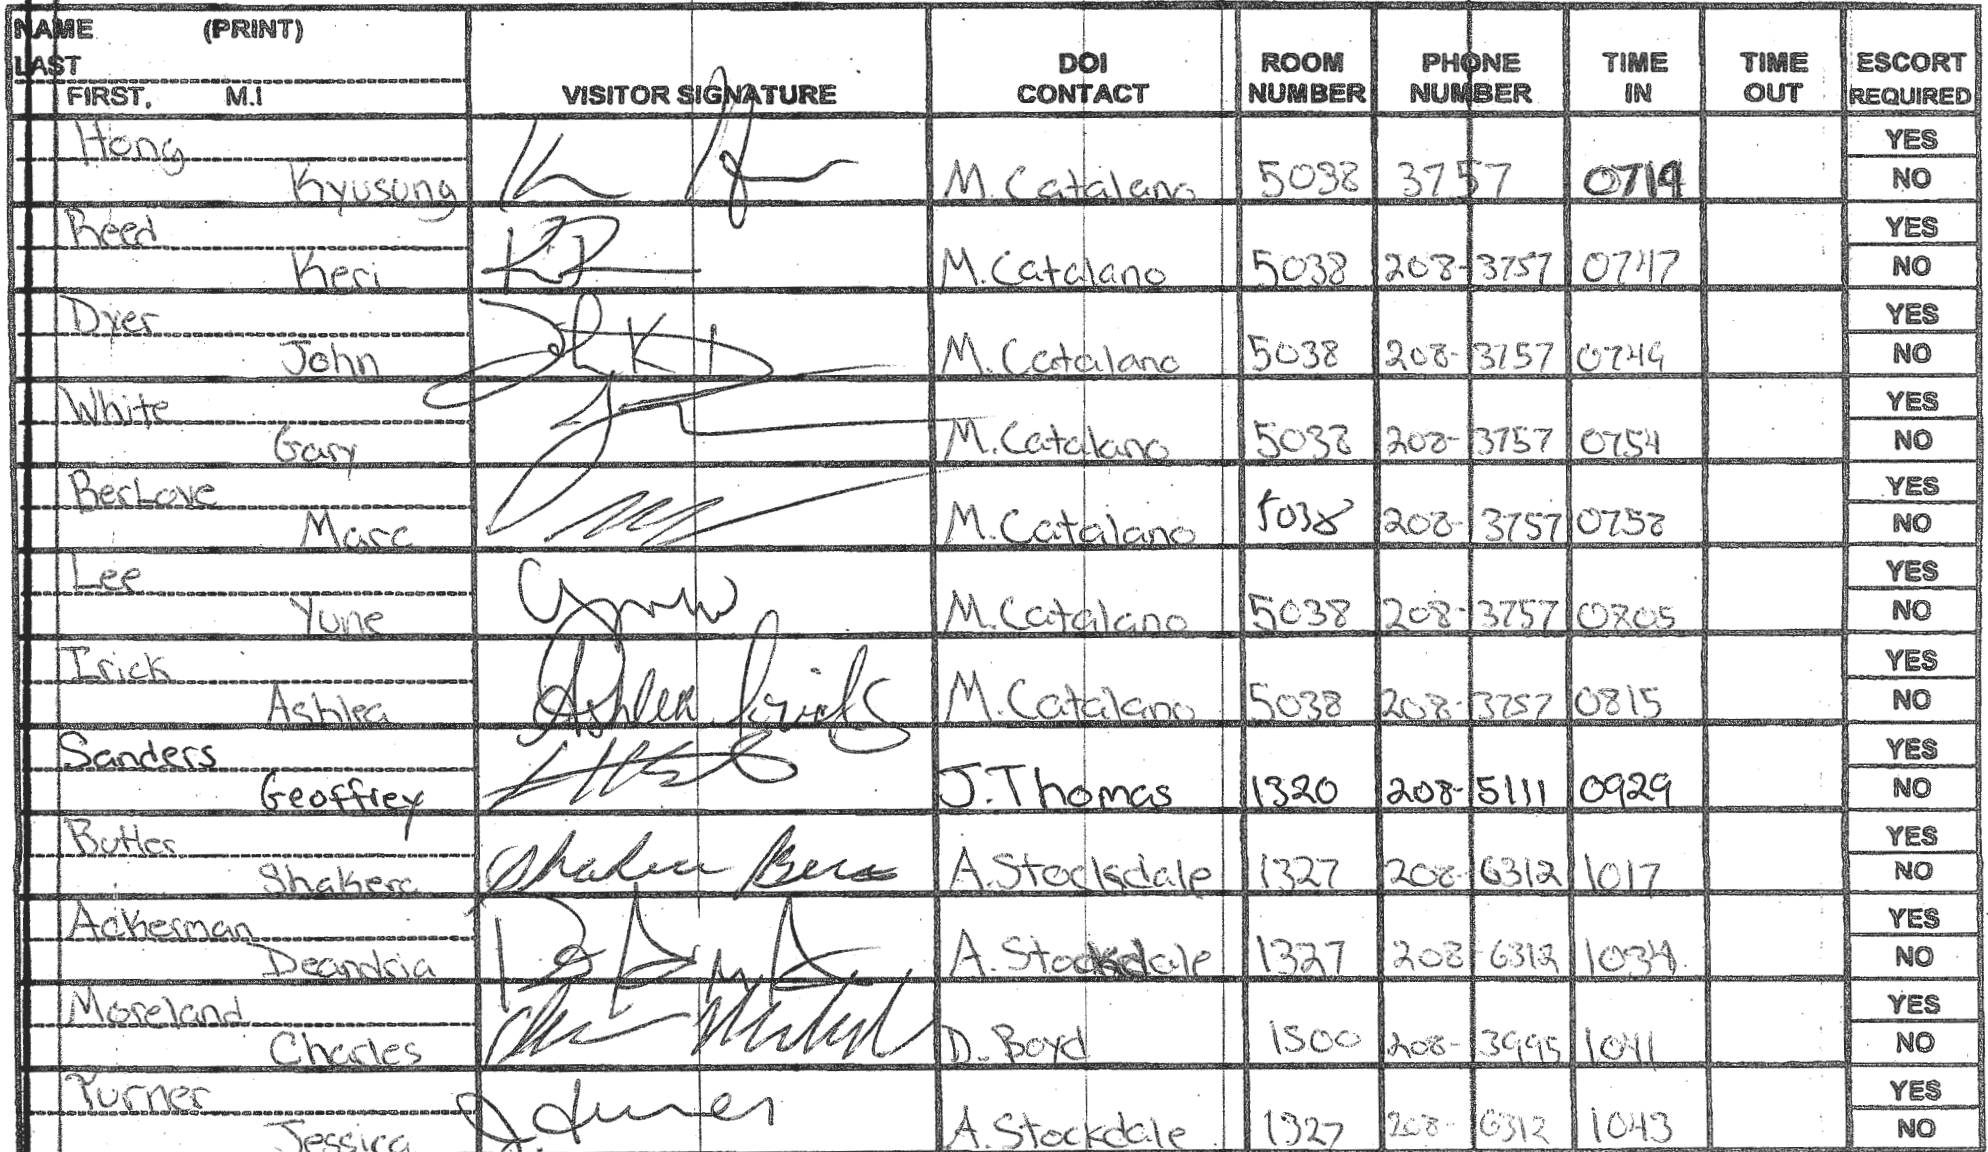 NAME (PRINT)
LAST
FIRST, M.I VISITOR SIGNATURE DOI CONTACT ROOM NUMBER PHONE NUMBER TIME IN TIME OUT ESCORT REQUIRED
Hong YES
Kyusung M. Catalano 5038 3757 0719 NO
Reed YES
Keri M. Catalano 5038 208-3757 0747 NO
Dyer YES
John M. Catalano 5038 208-3757 0749 NO
White YES
Gary M. Catalano 5038 208-3757 0754 NO
BerLove YES
Marc M. Catalano 5038 208-3757 0758 NO
Lee YES
Yune M. Catalano 5038 208-3757 0805 NO
Irick YES
Ashlea Ashlea Irick M. Catalano 5038 208-3757 0815 NO
Sanders YES
Geoffrey J. Thomas 1320 208-5111 0929 NO
Butler YES
Shakera A. Stocksdale 1327 208-6312 1017 NO
Ackerman YES
Deandria A. Stocksdale 1327 208-6312 1034 NO
Moreland YES
Charles D. Boyd 1500 208-3995 1041 NO
Turner YES
Jessica J. Turner A. Stockdale 1327 208-6312 1043 NO